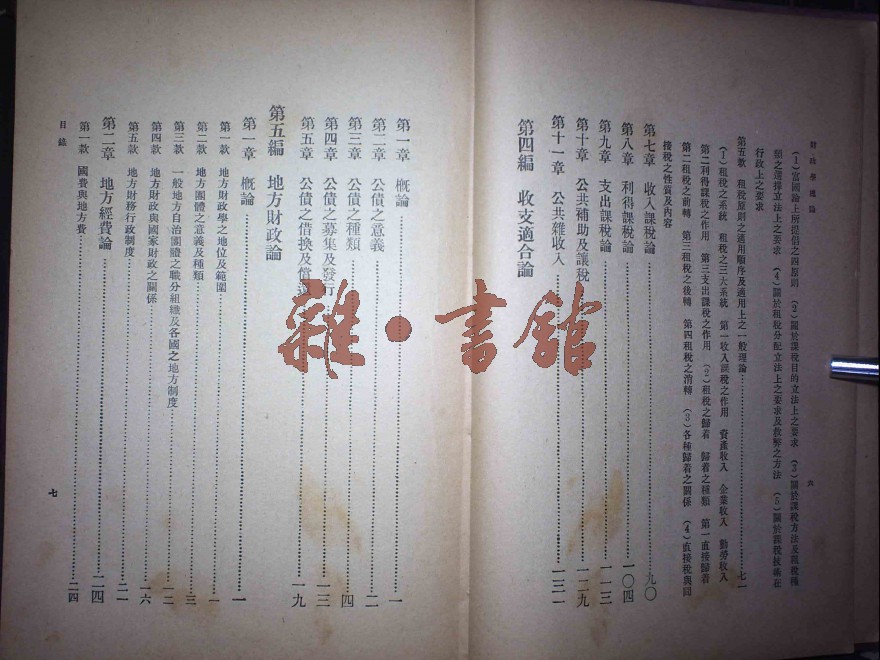 財政學總論
(1)富國論上所提倡之四原則 (2)關於課稅目的立法上之要求 (3)關於課稅方法及租稅種
類之選擇立法上之要求 (4)關於租稅分配立法上之要求及救弊之方法 (5)關於課稅技術在
行政上之要求
第五款 租稅原則之適用順序及適用上之一般理論…………七一
(1)租稅之系統 租稅之三大系統 第一收入課稅之作用 資產收入 企業收入 勤勞收入
第二利得課稅之作用 第三支出課稅之作用 (2)租稅之歸着 歸着之種類 第一直接歸着
第二租稅之前轉 第三租稅之後轉 第四租稅之消轉 (3)各種歸着之關係 (4)直接稅與間
接稅之性質及內容
第七章 收入課稅論…………九〇
第八章 利得課稅論…………一〇四
第九章 支出課稅論…………一一三
第十章 公共補助及讓稅…………一二九
第十一章 公共雜收入…………一三一
第四編 收支適合論
六
第一章 概論…………一
第二章 公債之意義…………二
第三章 公債之種類…………四
第四章 公債之募集及發行…………一三
第五章 公債之借換及償還…………一九
第五編 地方財政論
第一章 概論…………一
第一款 地方財政學之地位及範圍…………一
第二款 地方團體之意義及種類…………三
第三款 一般地方自治團體之職分組織及各國之地方制度…………一二
第四款 地方財政與國家財政之關係…………一六
第五款 地方財務行政制度…………二一
第二章 地方經費論…………二四
第一款 國費與地方費…………二四
目錄
七
雜·書館